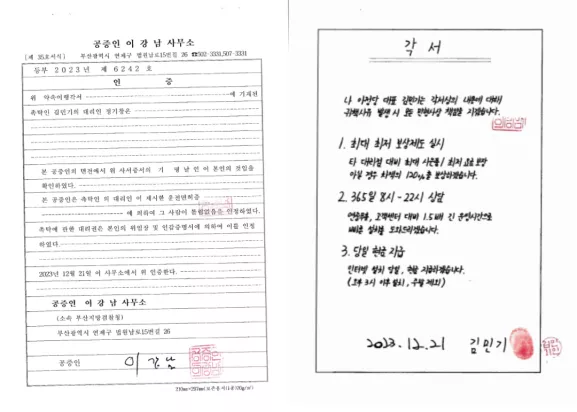 공증인 이 강 남 사무소
[제 35호서식] 부산광역시 연제구 법원남로15번길 26 ☎502-3331,507-3331
등부 2023 년 제 6242 호
인 증
위 약속이행각서 에 기재된
촉탁인 김민기의 대리인 정기창은
본 공증인의 면전에서 위 사서증서의 기 명 날 인 이 본인의 것임을
확인하였다.
본 공증인은 촉탁인 의 대리인 이 제시한 운전면허증
에 의하여 그 사람이 틀림없음을 인정하였다.
촉탁에 관한 대리권은 본인의 위임장 및 인감증명서에 의하여 이를 인정
하였다.
2023년 12월 21일 이 사무소에서 위 인증한다.
공증인 이 강 남 사무소
(소속 부산지방검찰청)
부산광역시 연제구 법원남로15번길 26
공증인 이 강 남
210㎜×297㎜(보존용지(1종)70g/㎡)
각 서
나 아정당 대표 김민기는 각서상의 내용에 대해
귀책사유 발생 시 모든 민형사상 책임을 지겠습니다.
1. 최대 최저 보상제도 실시
타 대리점 대비 최대 사은품 / 최저 요금 보장
아닐 경우 차액의 120%를 보상하겠습니다.
2. 365일 8시-22시 상담
연중무휴, 고객센터 대비 1.5배 긴 운영시간으로
빠른 설치를 도와드리겠습니다.
3. 당일 현금 지급
인터넷 설치 당일, 현금 지급하겠습니다.
(오후 3시 이후 설치, 주말 제외)
2023.12.21 김민기